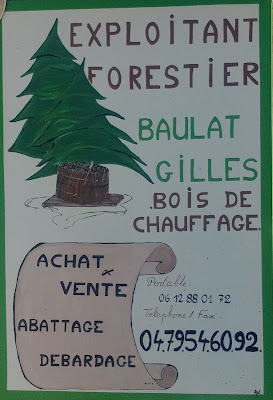 EXPLOITANT
FORESTIER
BAULAT
GILLES
BOIS DE
CHAUFFAGE.
ACHAT
&
VENTE
ABATTAGE
DEBARDAGE
...
Portable
06 12 88 01 72
Telephone / Fax
04.79.54.60.92.